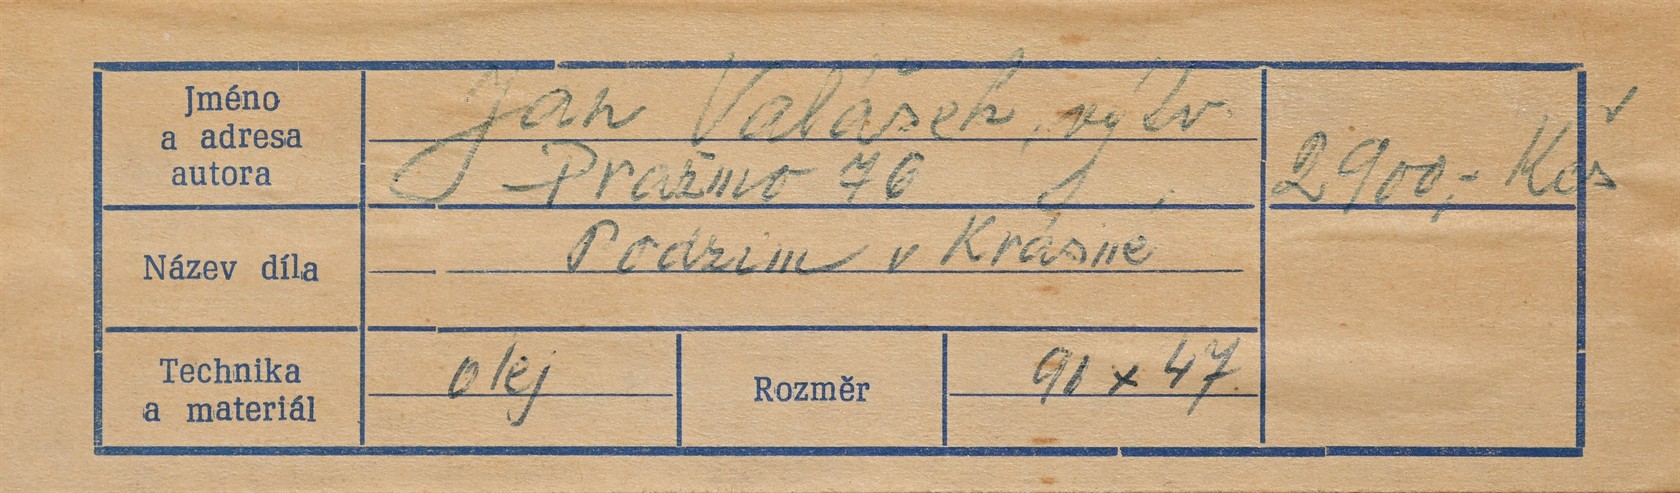 Jméno
a adresa
autora
Jan Valášek, výtv.
Pražmo 76
2900,- Kčs
Název díla
Podzim v Krásné
Technika
a materiál
olej
Rozměr
90 x 47